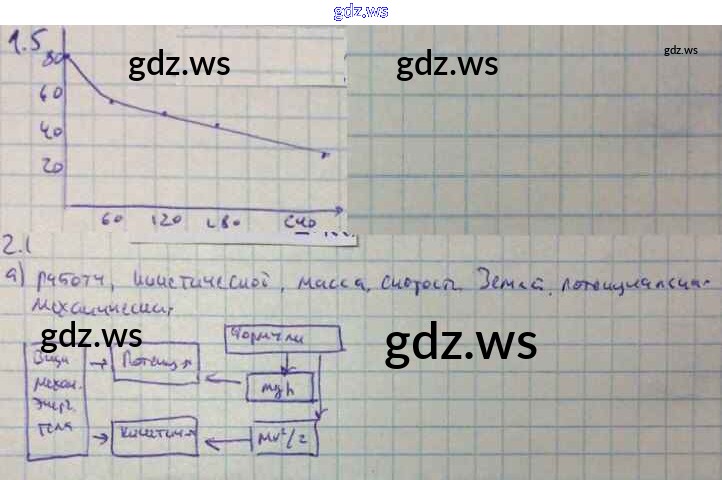 gdz.ws
1.5
80
gdz.ws
gdz.ws
gdz.ws
60
40
20
60 120 180 240
2.1
а) работа, кинетической, масса, скорость, Земля, потенциальная,
механическая,
gdz.ws
gdz.ws
Формулы
Виды
механ.
энерг.
тела
Потенц.
mgh
Кинетич.
mv²/2